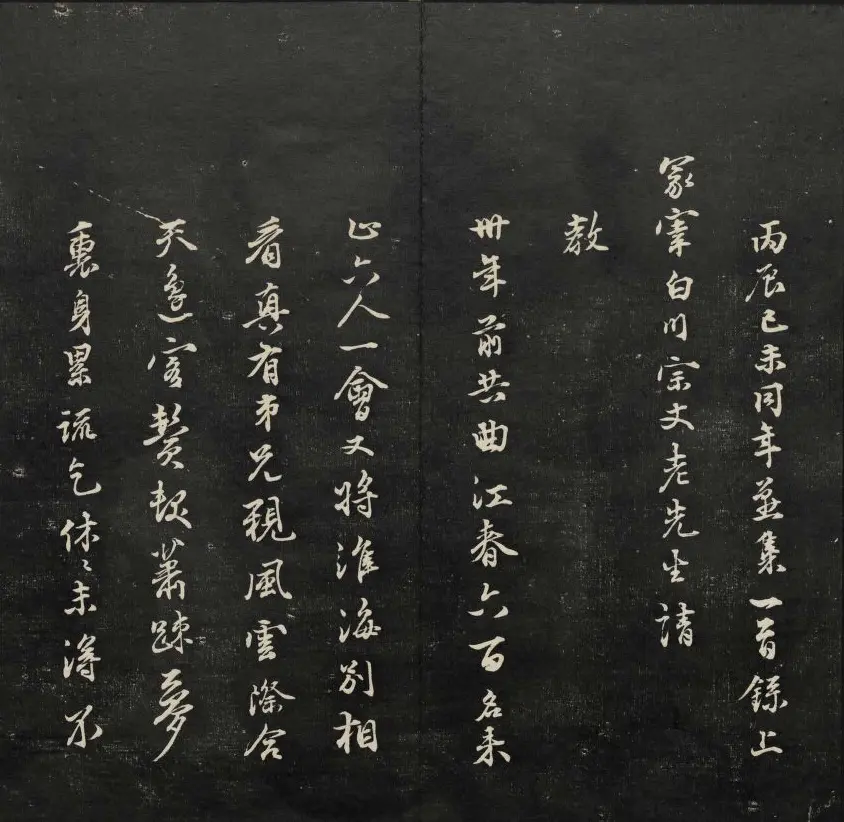 丙辰己未同年燕集一首錄上
冢宰白川宗丈老先生請
教
卅年前共曲江春六百名来
止六人一會又將淮海別相
看真有弟兄親風雲際合
天邊客鬢髮蕭踈夢
裏身累疏乞休〻未得不